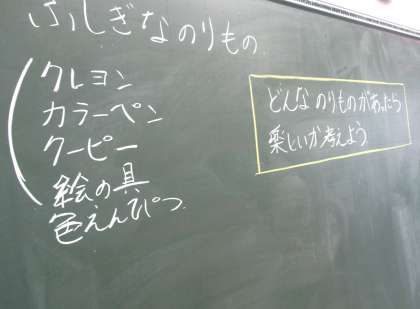 ふしぎなのりもの
クレヨン
カラーペン
クーピー
絵の具
色えんぴつ
どんなのりものがあったら
楽しいか考えよう